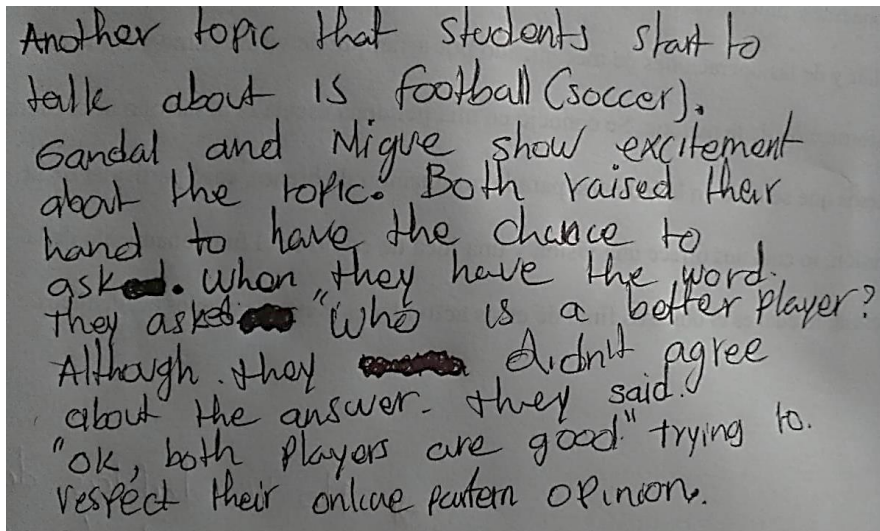 Another topic that students start to
talk about is football (soccer).
Gandal and Migue show excitement
about the topic. Both raised their
hand to have the chance to
ask. When they have the word.
they asked "Who is a better player?
Although. they didn't agree
about the answer. they said.
"ok, both players are good" trying to.
respect their online partern opinion.